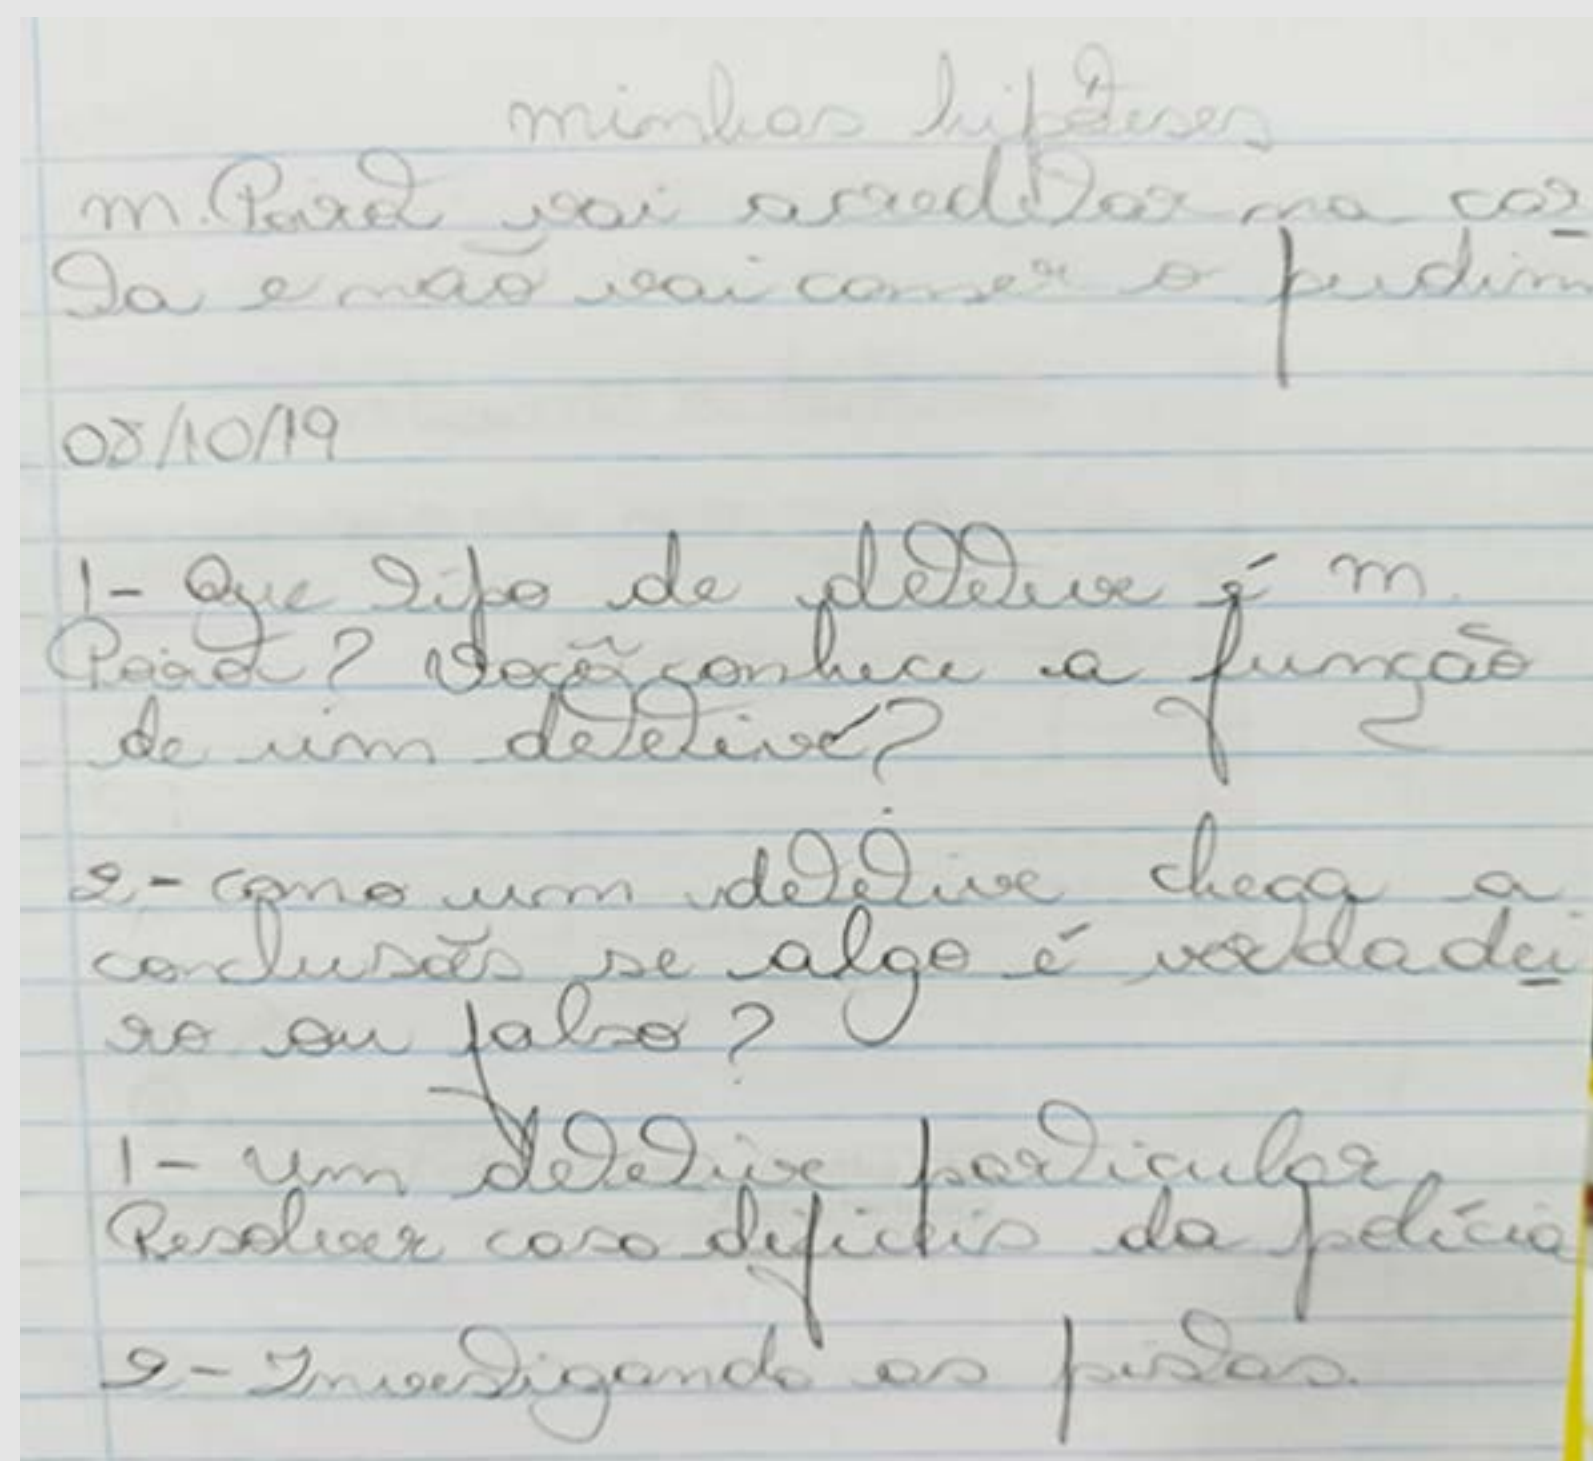 minhas hipóteses
m. Poirot vai acreditar na car
ta e não vai comer o pudim
08/10/19
1- Que tipo de detetive é m.
Poirot? Você conhece a função
de um detetive?
2- como um detetive chega a
conclusões se algo é verdadei
ro ou falso?
1- um detetive particular.
Resolver caso dificeis da polícia
2- Investigando as pistas.